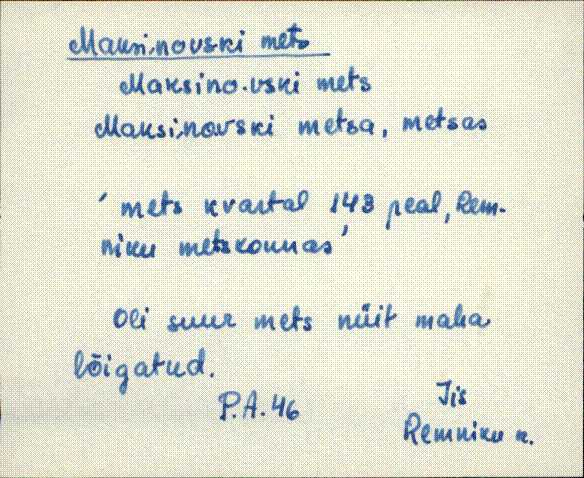 Maksi,novski mets
Maksino.vski mets
Maksi,novski metsa, metsas
' mets kvartal 143 peal, Rem-
niku metskonnas '
Oli suur mets nüit maha
lõigatud.
P.A. 46
Iis
Remniku k.